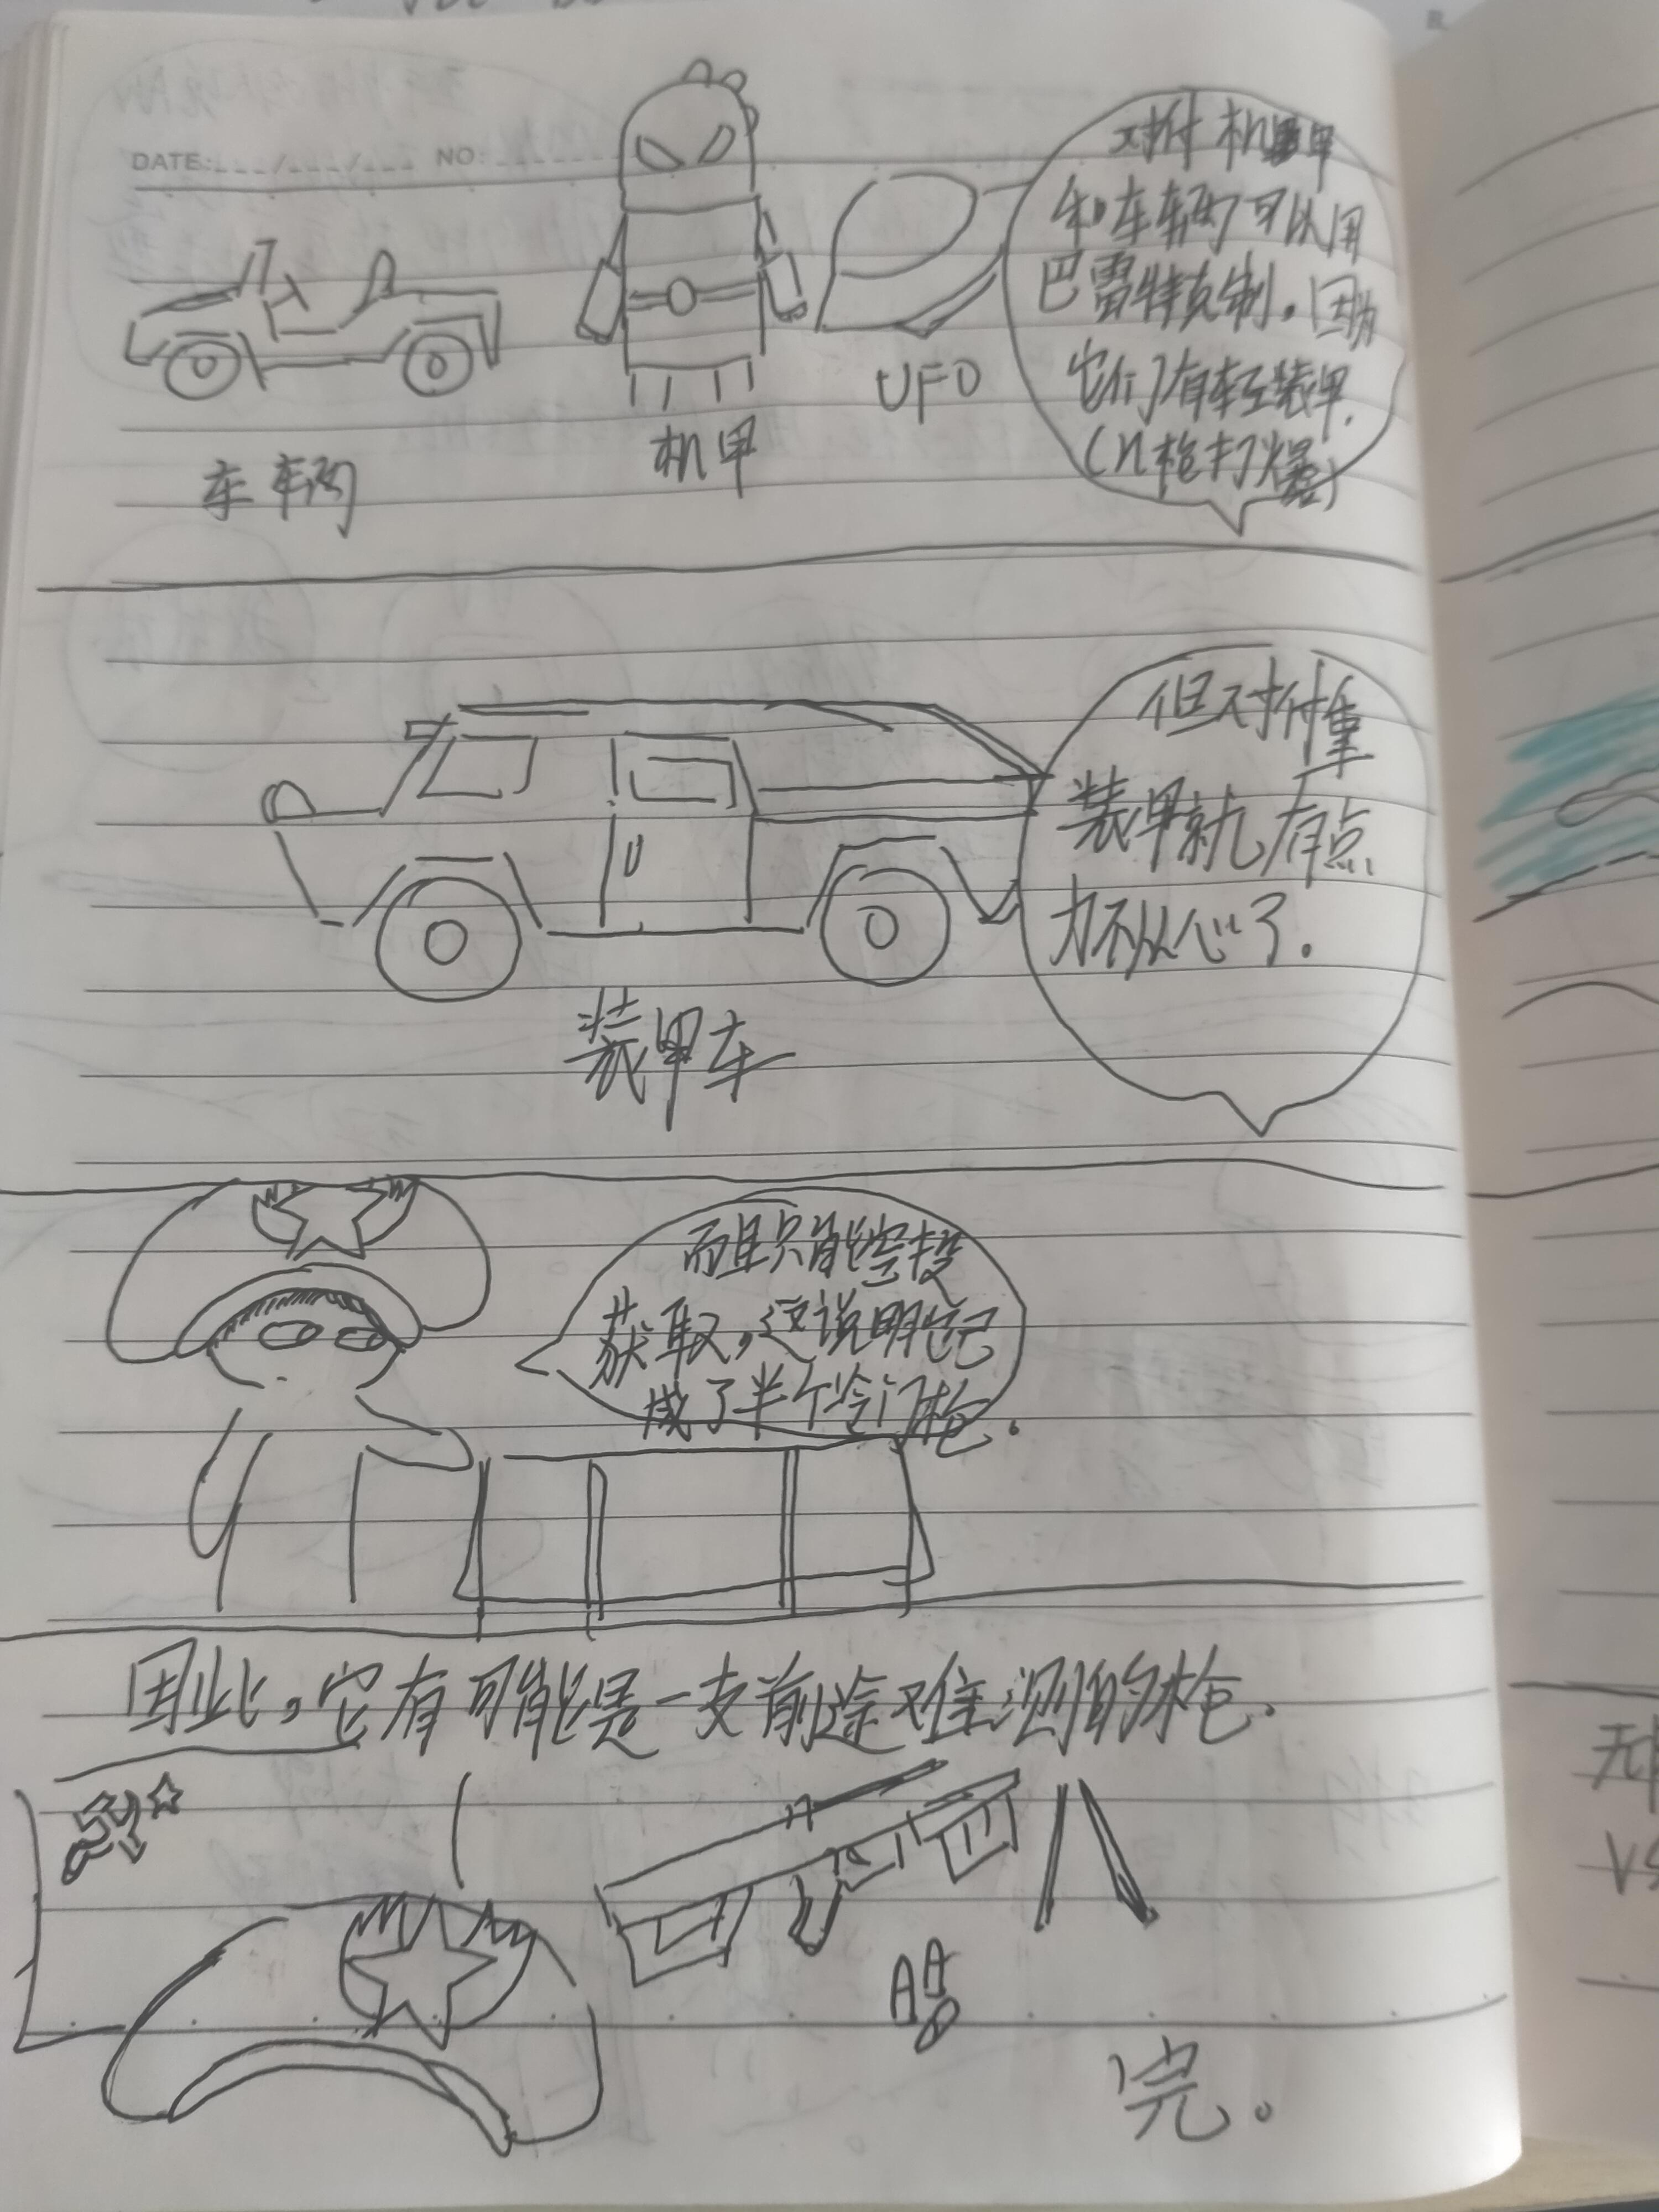 DATE:___/___/___ NO:______
对付机甲
和车辆可以用
巴雷特克制。因为
它们有轻装甲.
(几枪打爆)
UFO
机甲
车辆
但对付重
装甲就有点
力不从心了.
装甲车
而且只能空投
获取,这说明它已
成了半个冷门枪.
因此,它有可能是一支前途难测的枪.
完。
无
VS